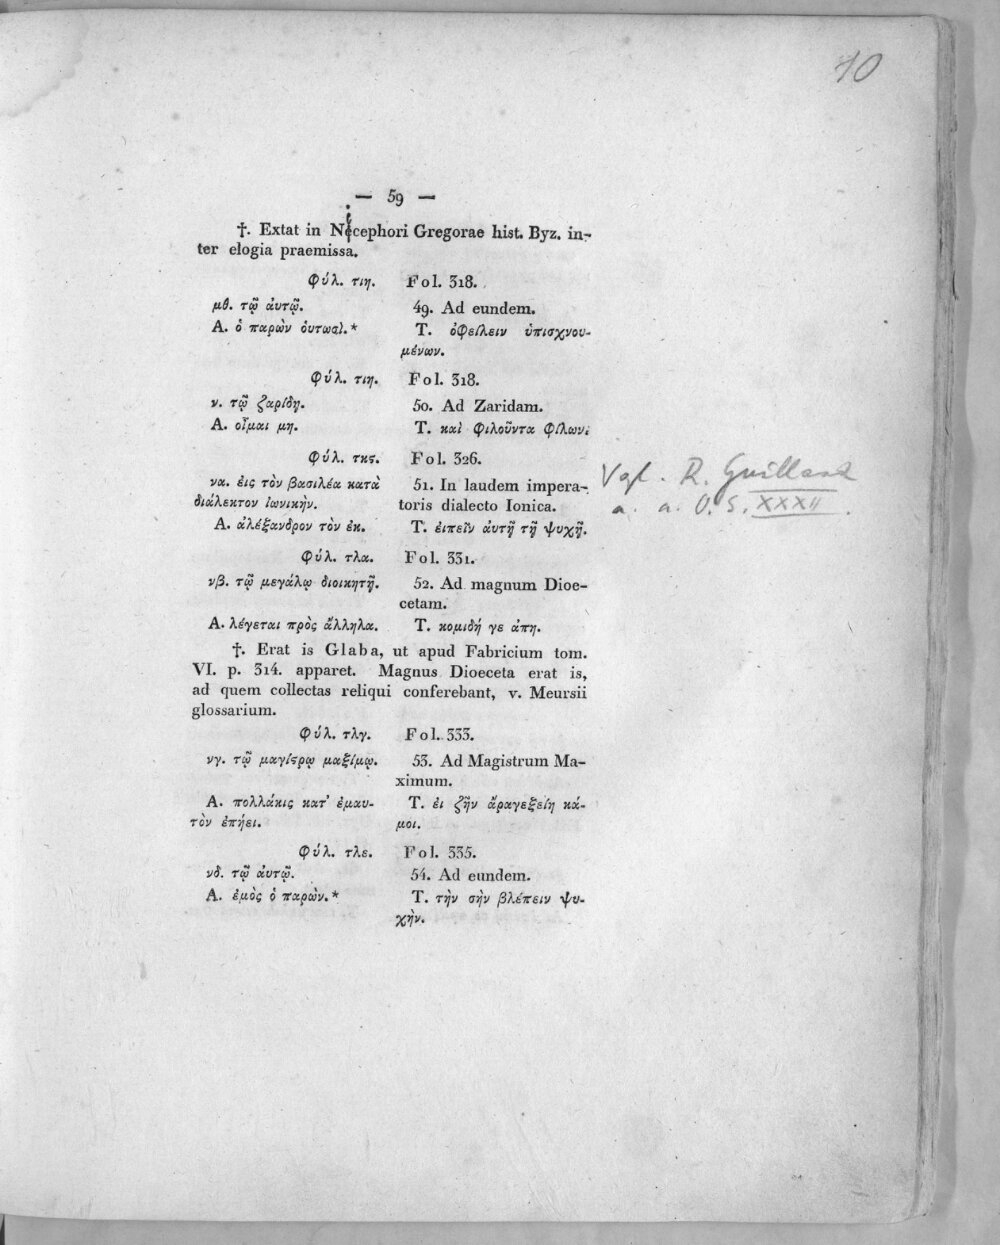 10
— 59 —
†. Extat in Nicephori Gregorae hist. Byz. in-
ter elogia praemissa.
Φύλ. τιη. Fol. 318.
μθ. τῷ ἀυτῷ. 49. Ad eundem.
Α. ὁ παρὼν ὁυτωσί.* Τ. ὀφείλειν ὑπισχνου-
μένων.
Φύλ. τιη. Fol. 318.
ν. τῷ ζαρίδῃ. 50. Ad Zaridam.
Α. οἶμαι μη. Τ. καὶ φιλοῦντα φίλων.
Φύλ. τκϛ. Fol. 326.
να. ἐις τὸν βασιλέα κατὰ 51. In laudem impera-
διάλεκτον ἰωνικὴν. toris dialecto Ionica.
Α. ἀλέξανδρον τὸν ἐκ. Τ. ἐιπεῖν ἀυτῇ τῇ ψυχῇ.
Φύλ. τλα. Fol. 331.
νβ. τῷ μεγάλῳ διοικητῇ. 52. Ad magnum Dioe-
cetam.
Α. λέγεται πρὸς ἄλληλα. Τ. κομιδῆ γε ἀπῃ.
†. Erat is Glaba, ut apud Fabricium tom.
VI. p. 314. apparet. Magnus Dioeceta erat is,
ad quem collectas reliqui conferebant, v. Meursii
glossarium.
Φύλ. τλγ. Fol. 333.
νγ. τῷ μαγίϛρῳ μαξίμῳ. 53. Ad Magistrum Ma-
ximum.
Α. πολλάκις κατ' ἐμαυ- Τ. ἐι ζῆν ἄραγεξείη κά-
τὸν ἐπήει. μοι.
Φύλ. τλε. Fol. 335.
νδ. τῷ ἀυτῷ. 54. Ad eundem.
Α. ἐμὸς ὁ παρὼν.* Τ. τὴν σὴν βλέπειν ψυ-
χὴν.
Vgl. R. Guilland
a. a. O. S. XXXII.